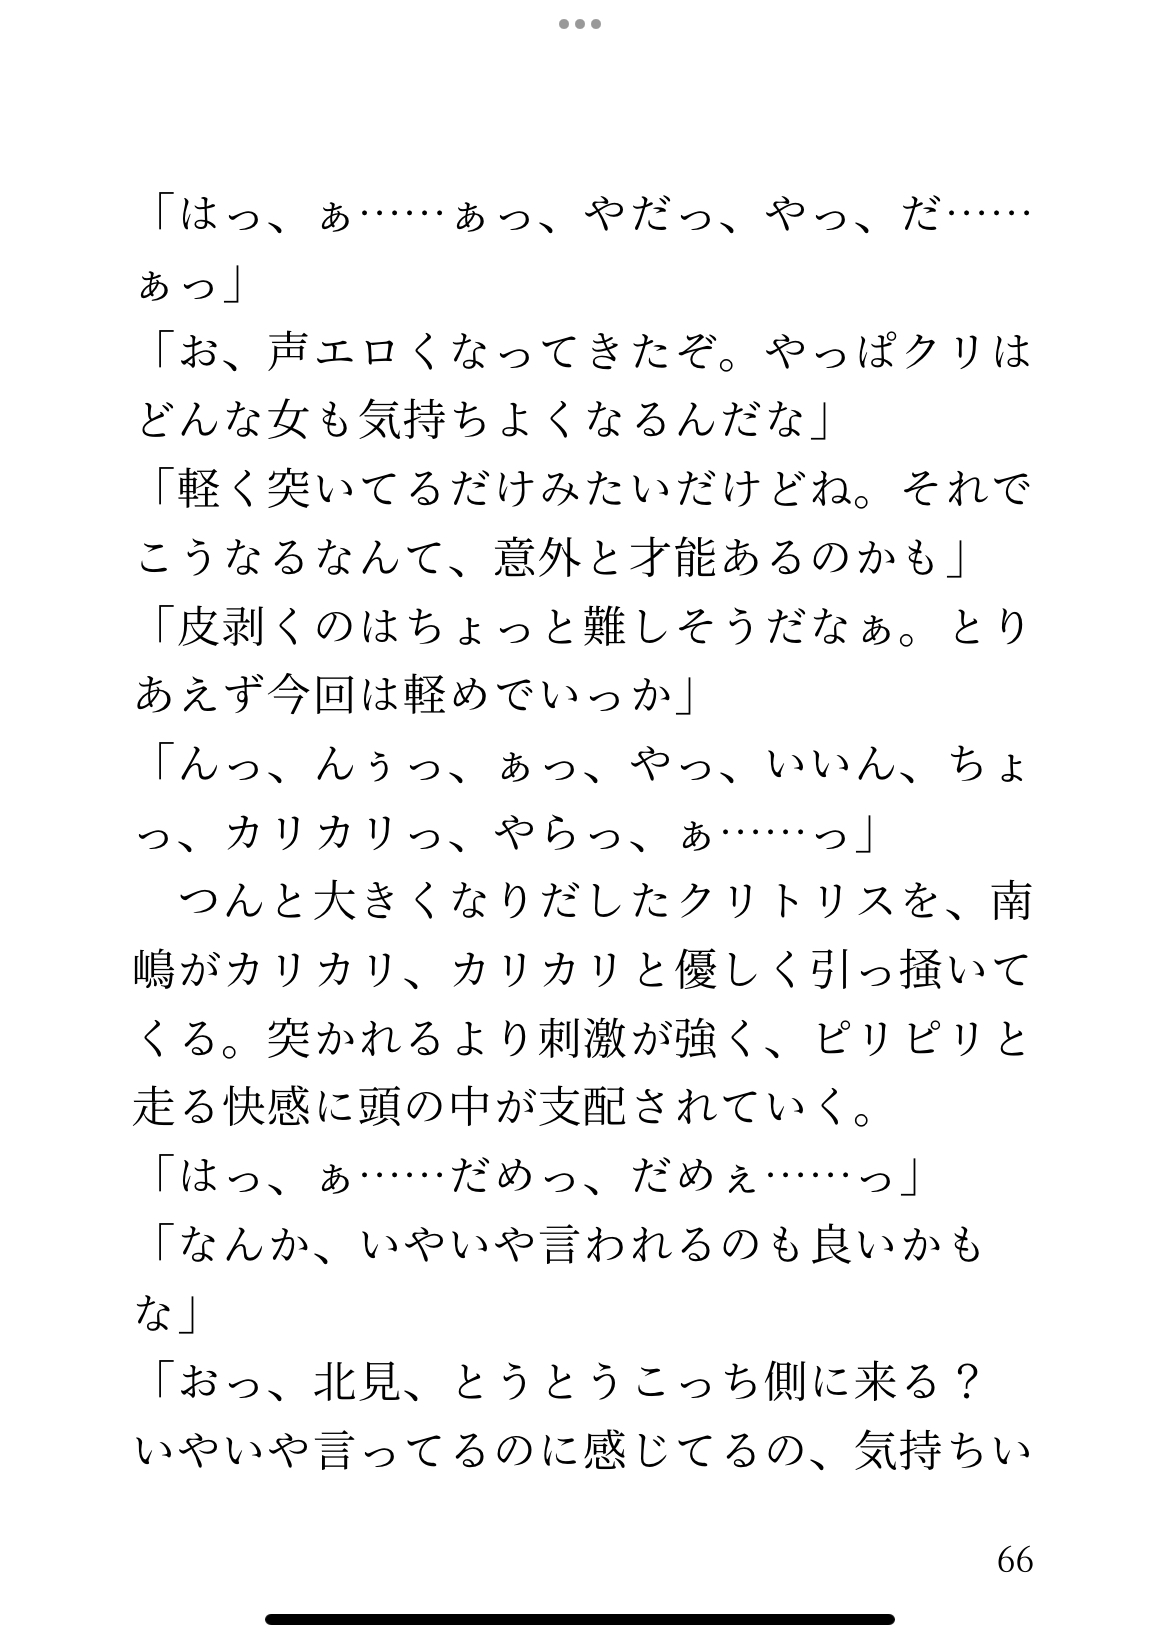 「はっ、ぁ……ぁっ、やだっ、やっ、だ……
ぁっ」
「お、声エロくなってきたぞ。やっぱクリは
どんな女も気持ちよくなるんだな」
「軽く突いてるだけみたいだけどね。それで
こうなるなんて、意外と才能あるのかも」
「皮剥くのはちょっと難しそうだなぁ。とり
あえず今回は軽めでいっか」
「んっ、んぅっ、ぁっ、やっ、いいん、ちょ
っ、カリカリっ、やらっ、ぁ……っ」
　つんと大きくなりだしたクリトリスを、南
嶋がカリカリ、カリカリと優しく引っ掻いて
くる。突かれるより刺激が強く、ピリピリと
走る快感に頭の中が支配されていく。
「はっ、ぁ……だめっ、だめぇ……っ」
「なんか、いやいや言われるのも良いかも
な」
「おっ、北見、とうとうこっち側に来る？
いやいや言ってるのに感じてるの、気持ちい
66